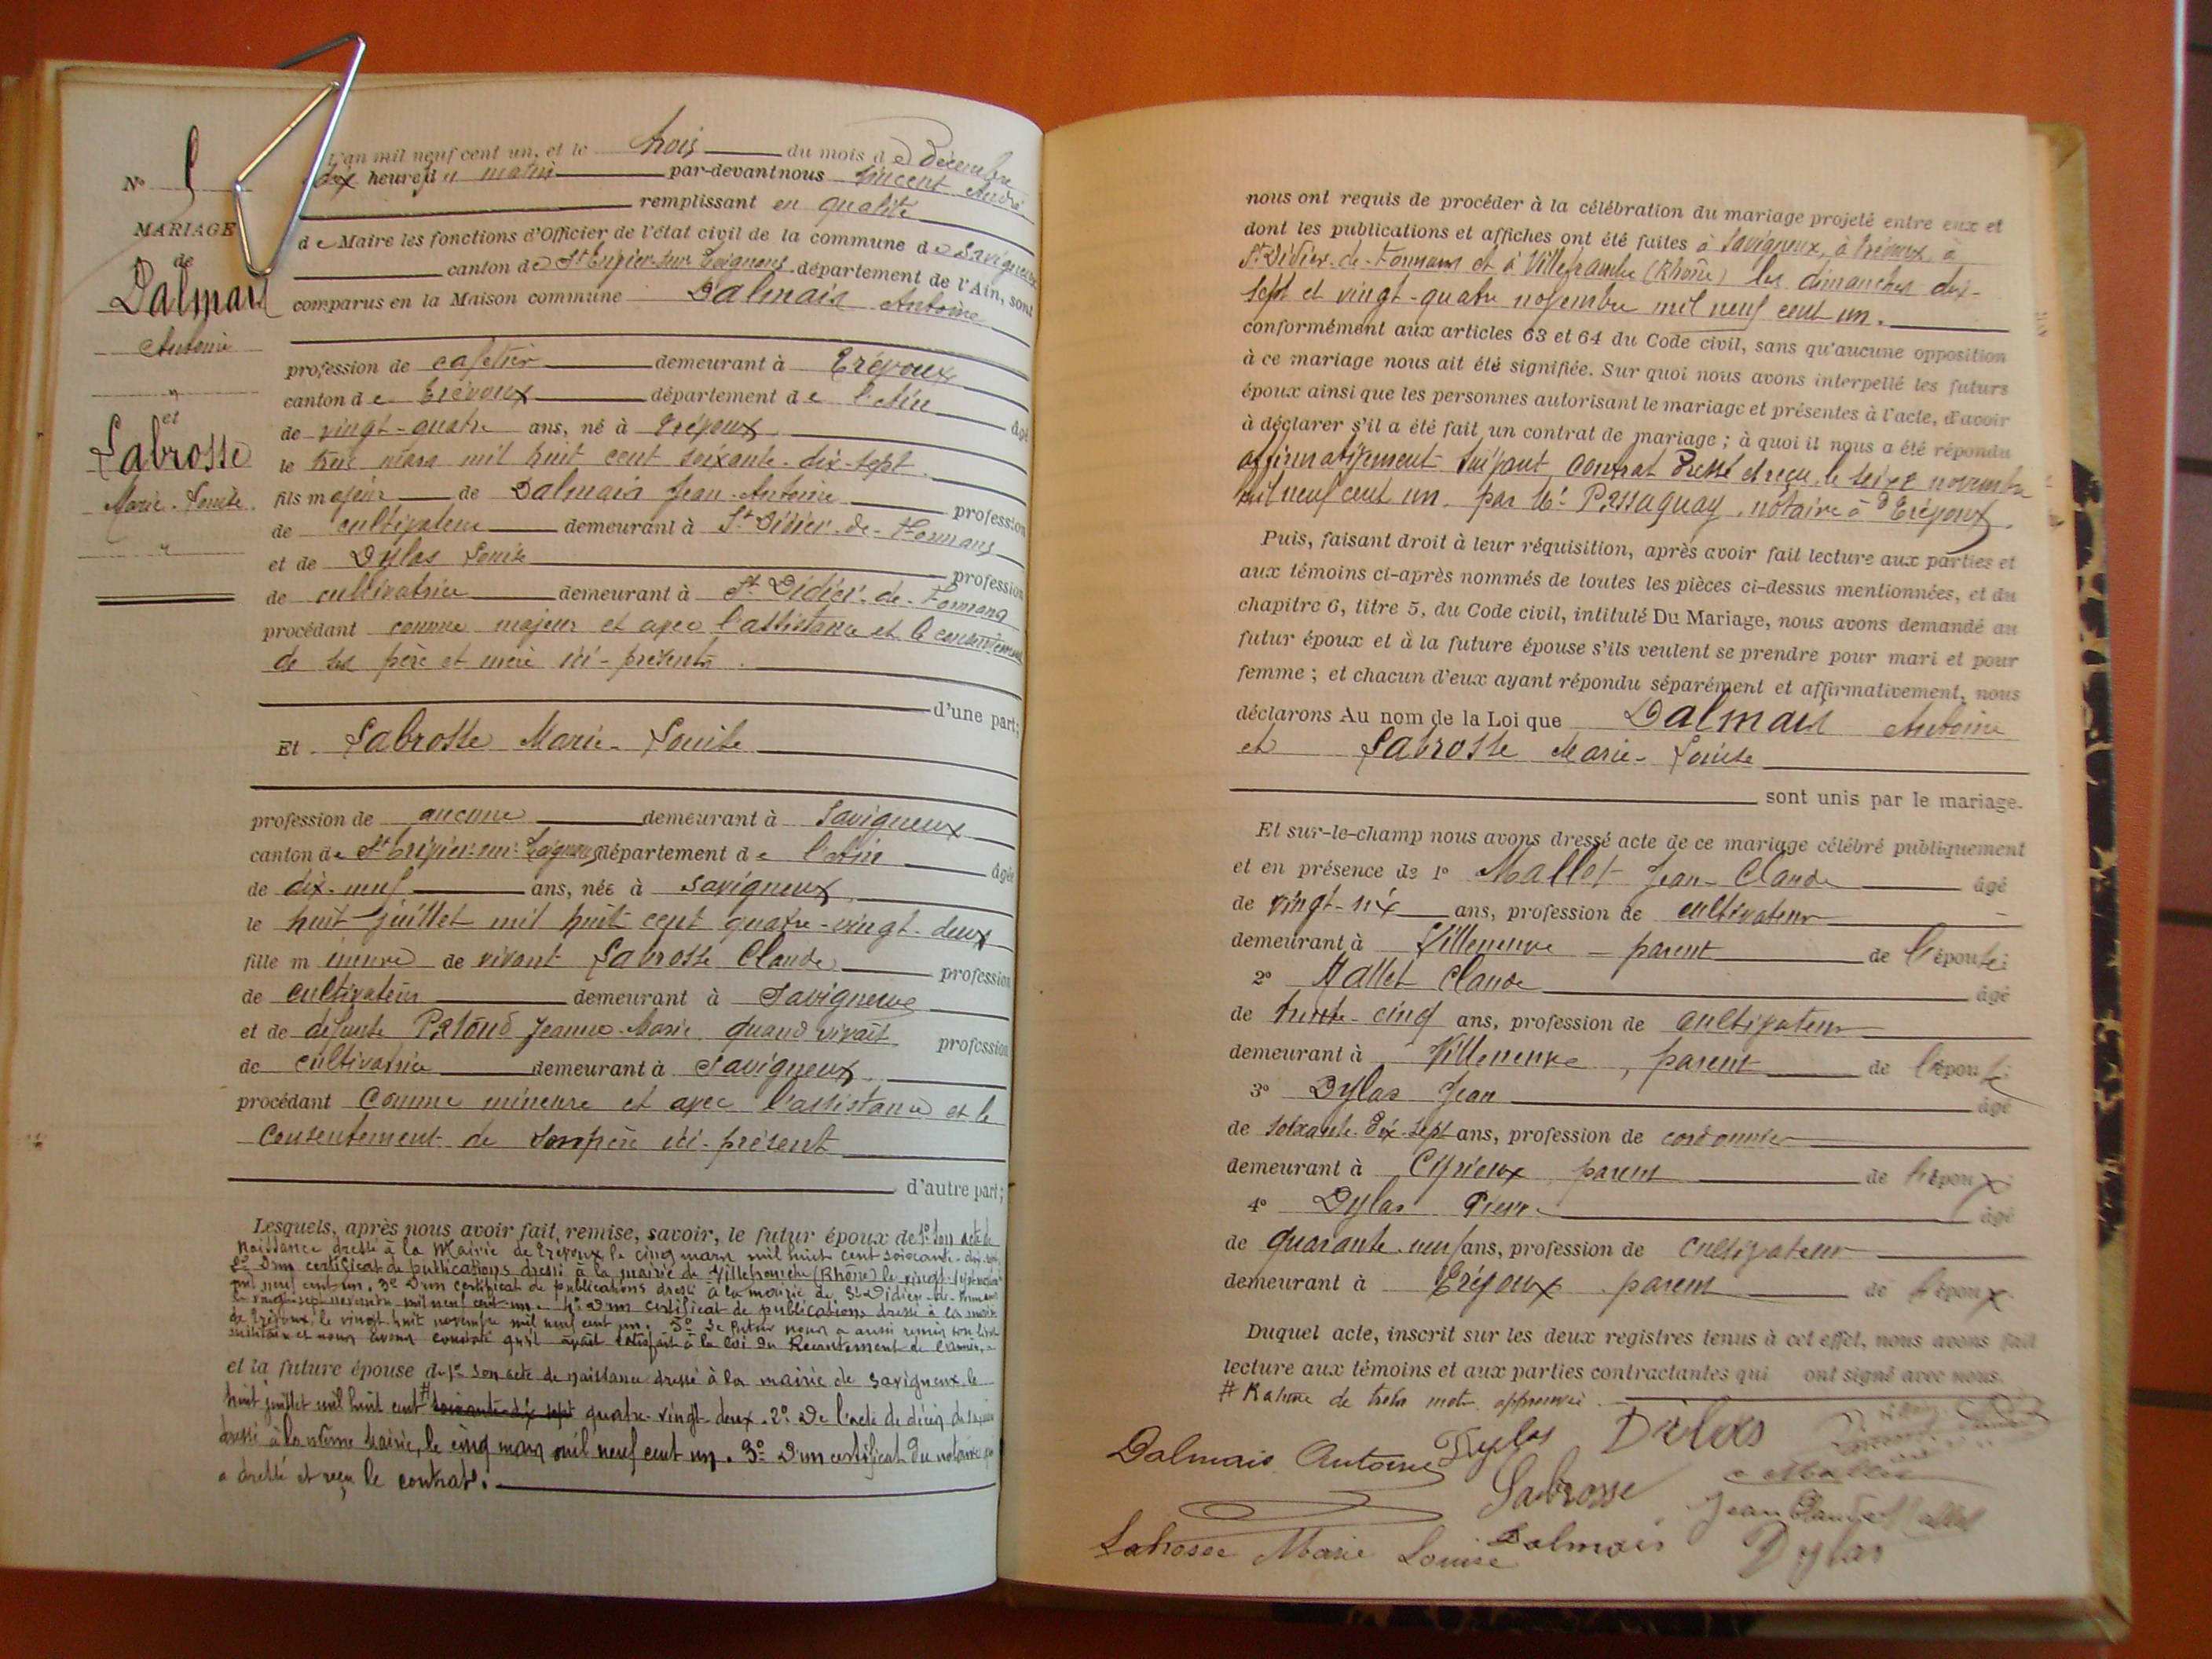 N° 5
MARIAGE
de
Dalmais
Antoine
et
Labrosse
Marie-Louise
L'an mil neuf cent un, et le trois du mois de Décembre
dix heures du matin par-devant nous Vincent André
remplissant en qualité
de Maire les fonctions d'Officier de l'état civil de la commune de Savigneux
canton de St Trivier-sur-Moignans département de l'Ain, sont
comparus en la Maison commune Dalmais Antoine
profession de cafetier demeurant à Trévoux
canton de Trévoux département de l'Ain âgé
de vingt-quatre ans, né à Trévoux
le mars mil huit cent soixante-dix-sept
fils majeur de Dalmais Jean-Antoine profession
de cultivateur demeurant à St Didier-de-Formans
et de Dylas Louise profession
de cultivatrice demeurant à St Didier-de-Formans
procédant comme majeur et avec l'assistance et le consentement
de ses père et mère ici-présents.
d'une part;
Et Labrosse Marie-Louise
profession de aucune demeurant à Savigneux
canton de St Trivier-sur-Moignans département de l'Ain âgée
de dix-neuf ans, née à Savigneux
le huit juillet mil huit cent quatre-vingt-deux
fille mineure de vivant Labrosse Claude profession
de cultivateur demeurant à Savigneux
et de défunte Jeanne-Marie quand vivait profession
de cultivatrice demeurant à Savigneux
procédant Comme mineure et avec l'assistance et le
consentement de son père ici-présent
d'autre part;
Lesquels, après nous avoir fait remise, savoir, le futur époux de 1° son acte de
naissance dressé à la Mairie de Trévoux le cinq mars mil huit cent soixante-dix-sept,
2° D'un certificat de publications dressé à la mairie de Villefranche (Rhône) le vingt-sept novembre
mil neuf cent un. 3° D'un certificat de publications dressé à la mairie de St Didier-de-Formans
le vingt-sept novembre mil neuf cent un. 4° D'un certificat de publications dressé à la mairie
de Trévoux, le vingt huit novembre mil neuf cent un. 5° Le futur nous a aussi remis son livret
militaire et nous avons constaté qu'il avait satisfait à la loi du Recrutement de l'armée,
et la future épouse de 1° son acte de naissance dressé à la mairie de Savigneux le
huit juillet mil huit cent # soixante-dix-sept quatre-vingt-deux. 2° De l'acte de décès de sa mère
dressé à la même Mairie, le cinq mars mil neuf cent un. 3° D'un certificat du notaire qui
a dressé et reçu le contrat.
nous ont requis de procéder à la célébration du mariage projeté entre eux et
dont les publications et affiches ont été faites à Savigneux, à Trévoux, à
St Didier-de-Formans et à Villefranche (Rhône) les dimanches dix-
sept et vingt-quatre novembre mil neuf cent un.
conformément aux articles 63 et 64 du Code civil, sans qu'aucune opposition
à ce mariage nous ait été signifiée. Sur quoi nous avons interpellé les futurs
époux ainsi que les personnes autorisant le mariage et présentes à l'acte, d'avoir
à déclarer s'il a été fait un contrat de mariage; à quoi il nous a été répondu
affirmativement suivant contrat dressé et reçu le seize novembre
mil neuf cent un par Me Passaquay, notaire à Trévoux.
Puis, faisant droit à leur réquisition, après avoir fait lecture aux parties et
aux témoins ci-après nommés de toutes les pièces ci-dessus mentionnées, et du
chapitre 6, titre 5, du Code civil, intitulé Du Mariage, nous avons demandé au
futur époux et à la future épouse s'ils veulent se prendre pour mari et pour
femme; et chacun d'eux ayant répondu séparément et affirmativement, nous
déclarons Au nom de la Loi que Dalmais Antoine
et Labrosse Marie-Louise
sont unis par le mariage.
Et sur-le-champ nous avons dressé acte de ce mariage célébré publiquement
et en présence de 1° Mallet Jean-Claude âgé
de vingt-six ans, profession de cultivateur
demeurant à Villeneuve parent de l'épouse;
2° Mallet Claude âgé
de trente-cinq ans, profession de cultivateur
demeurant à Villeneuve, parent de l'épouse;
3° Dylas Jean âgé
de soixante-dix-sept ans, profession de cordonnier
demeurant à Civrieux parent de l'époux;
4° Dylas Pierre âgé
de quarante-neuf ans, profession de cultivateur
demeurant à Trévoux parent de l'époux
Duquel acte, inscrit sur les deux registres tenus à cet effet, nous avons fait
lecture aux témoins et aux parties contractantes qui ont signé avec nous.
# Rature de trois mots approuvée.
Dalmais Antoine Dylas Dilas
Labrosse Mallet
Jean Claude Mallet
Labrosse Marie Louise Dalmais Dylas